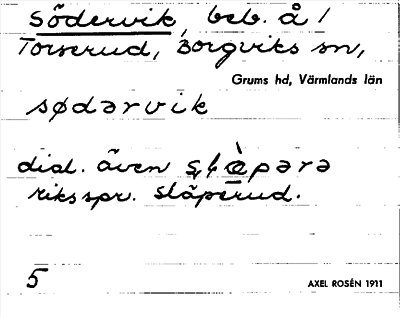 Södervik, beb. å 1
Torserud, Borgviks sn,
Grums hd, Värmlands län
sødərvik
dial. även
riksspr. släperud.
5
AXEL ROSÉN 1911